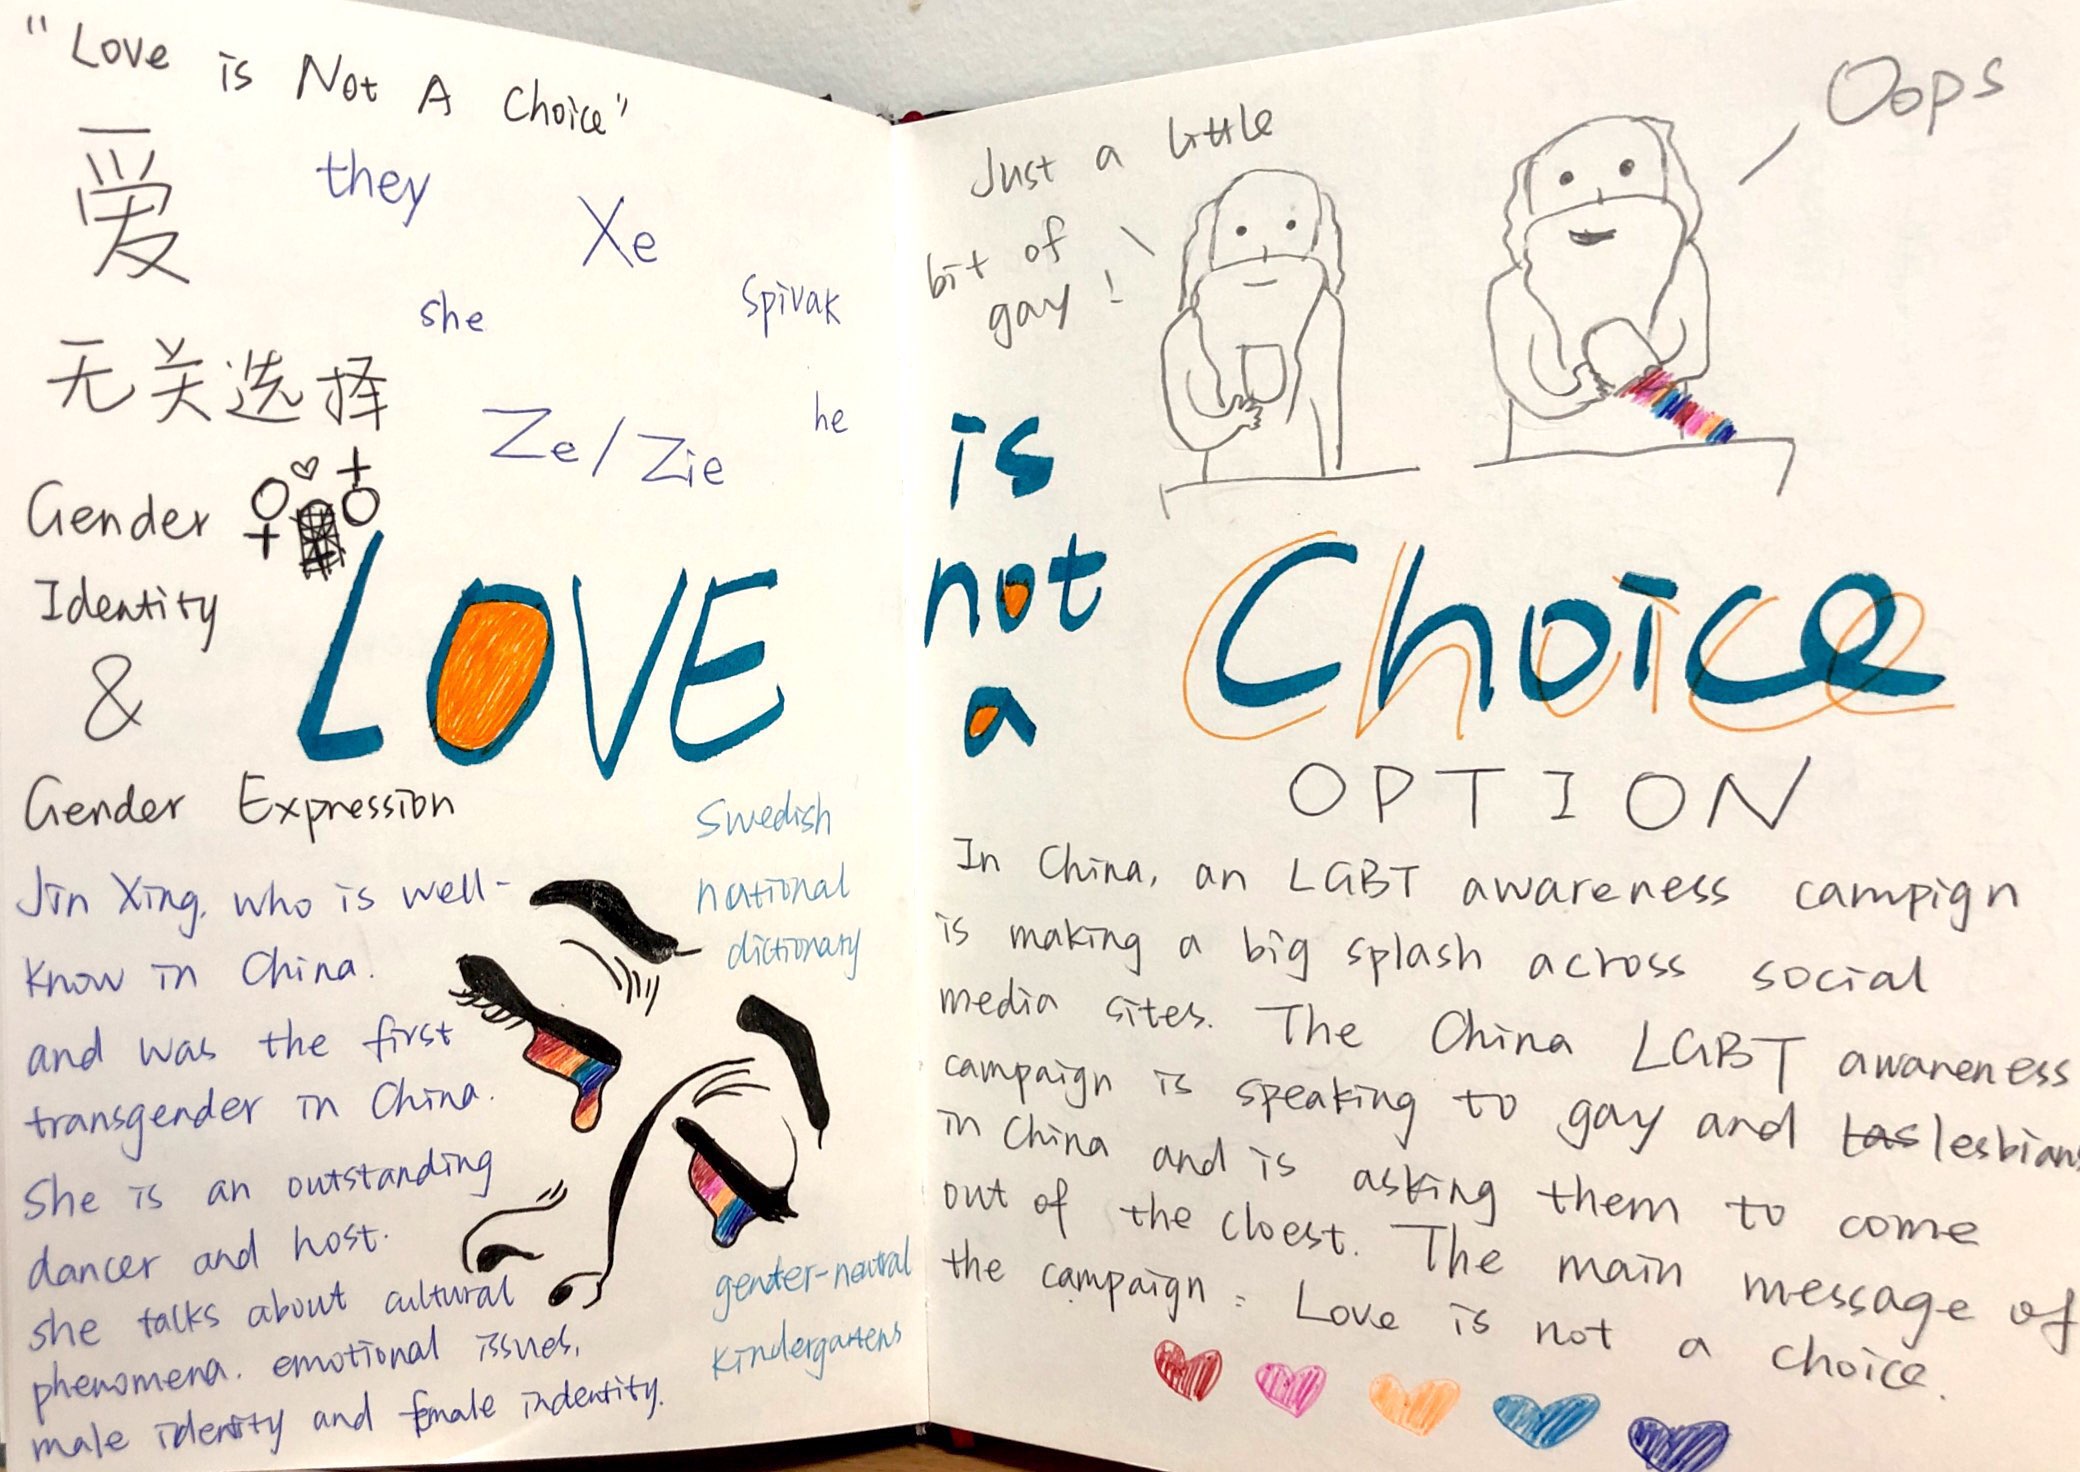 "Love is Not A Choice"
爱
they
Xe
she
Spivak
无关选择
Ze/Zie
he
Gender
Identity
&
Gender Expression
LOVE
Jin Xing, who is well-
know in China.
and was the first
transgender in China.
She is an outstanding
dancer and host.
she talks about cultural
phenomena. emotional issues,
male identity and female indentity.
Swedish
national
dictionary
gender-neutral
kindergartens
Just a little
bit of
gay!
Oops
is
not
a
Choice
OPTION
In China, an LGBT awareness campign
is making a big splash across social
media sites. The China LGBT awareness
campaign is speaking to gay and las lesbians
in China and is asking them to come
out of the cloest. The main message of
the campaign: Love is not a choice.